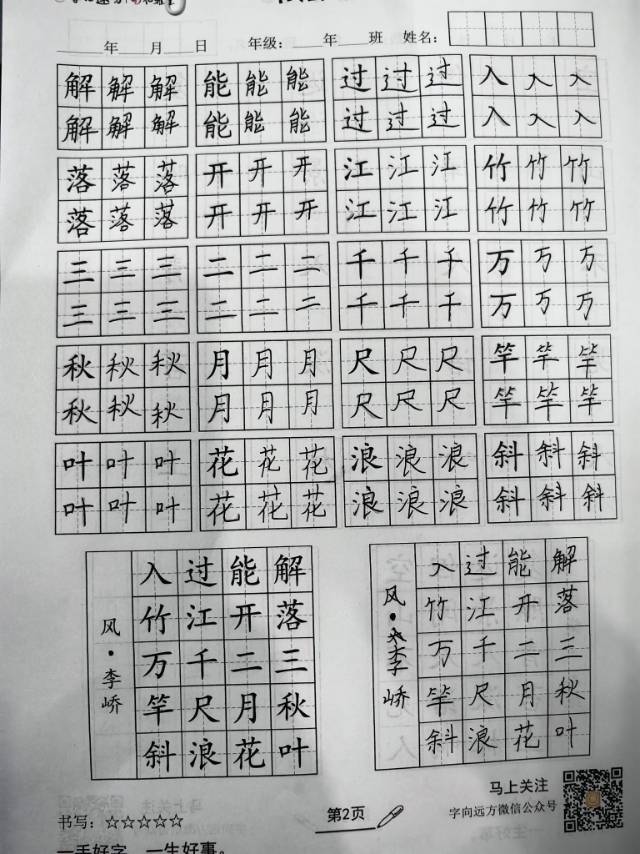 年 月 日 年级： 年 班 姓名：
解 解 解 能 能 能 过 过 过 入 入 入
解 解 解 能 能 能 过 过 过 入 入 入
落 落 落 开 开 开 江 江 江 竹 竹 竹
落 落 落 开 开 开 江 江 江 竹 竹 竹
三 三 三 二 二 二 千 千 千 万 万 万
三 三 三 二 二 二 千 千 千 万 万 万
秋 秋 秋 月 月 月 尺 尺 尺 竿 竿 竿
秋 秋 秋 月 月 月 尺 尺 尺 竿 竿 竿
叶 叶 叶 花 花 花 浪 浪 浪 斜 斜 斜
叶 叶 叶 花 花 花 浪 浪 浪 斜 斜 斜
解落三秋叶
能开二月花
过江千尺浪
入竹万竿斜
风·李峤
解落三秋叶
能开二月花
过江千尺浪
入竹万竿斜
风·李峤
马上关注
字向远方微信公众号
书写：☆☆☆☆☆
第2页
一手好字，一生好事。